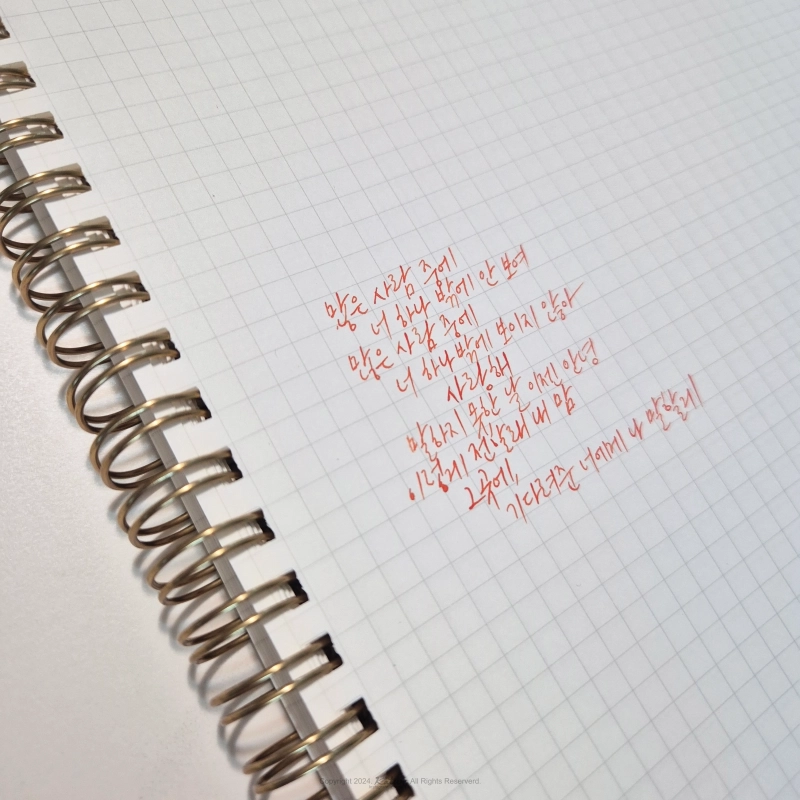 많은 사람 중에
너 하나 밖에 안 보여
많은 사람 중에
너 하나 밖에 보이지 않아
사랑해
말하지 못한 날 이젠 안녕
이렇게 전할래 내 맘
그곳에,
기다려준 너에게 나 말할래
Copyright 2024. All Rights Reserverd.